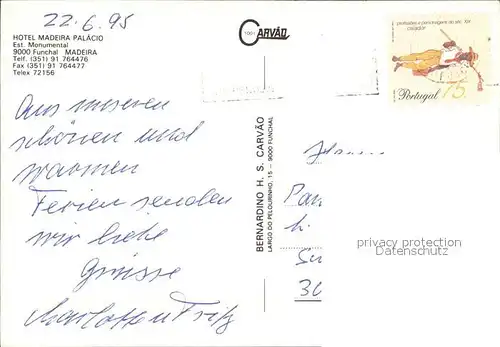 22.6.95
HOTEL MADEIRA PALÁCIO
Est. Monumental
9000 Funchal MADEIRA
Telf. (351) 91 764476
Fax (351) 91 764477
Telex 72156
CARVÃO
profissões e personagens do séc. XIX
caçador
Portugal 75.
Aus unseren
schönen und
warmen
Ferien senden
wir liebe
Grüsse
Charlotte u Fritz
BERNARDINO H. S. CARVÃO
LARGO DO PELOURINHO, 15 - 9000 FUNCHAL
privacy protection
Datenschutz